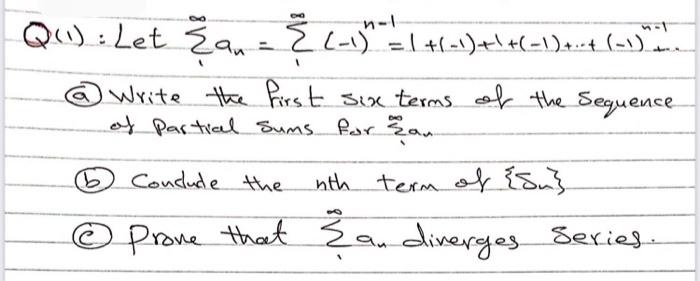 Q(1) : Let ∞Σ1 an = ∞Σ1 (-1)^n-1 = 1 + (-1) + 1 + (-1) + ... + (-1)^n-1 + ...
ⓐ Write the first six terms of the sequence
of partial sums for ∞Σ1 an
ⓑ Conclude the nth term of {Sn}
ⓒ Prove that ∞Σ1 an diverges series.